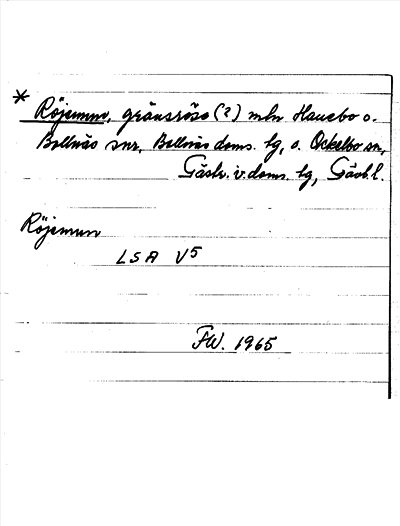 * Röjemun, gränsröse (?) mln Hanebo o.
Bollnäs snr, Bollnäs doms. tg, o. Ockelbo sn,
Gästr. v. doms. tg, Gävb. l.
Röjemun
LSA V5
FW. 1965